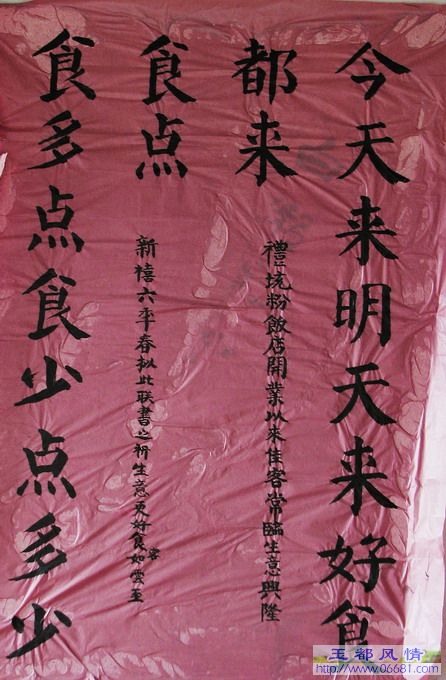 今天来明天来好食
都来
禮垸粉飯店開業以来佳客常臨生意興隆
食点
新禧六年春拟此联書之祈生意更好食客如雲至
食多点食少点多少
玉都风情
www.06681.com